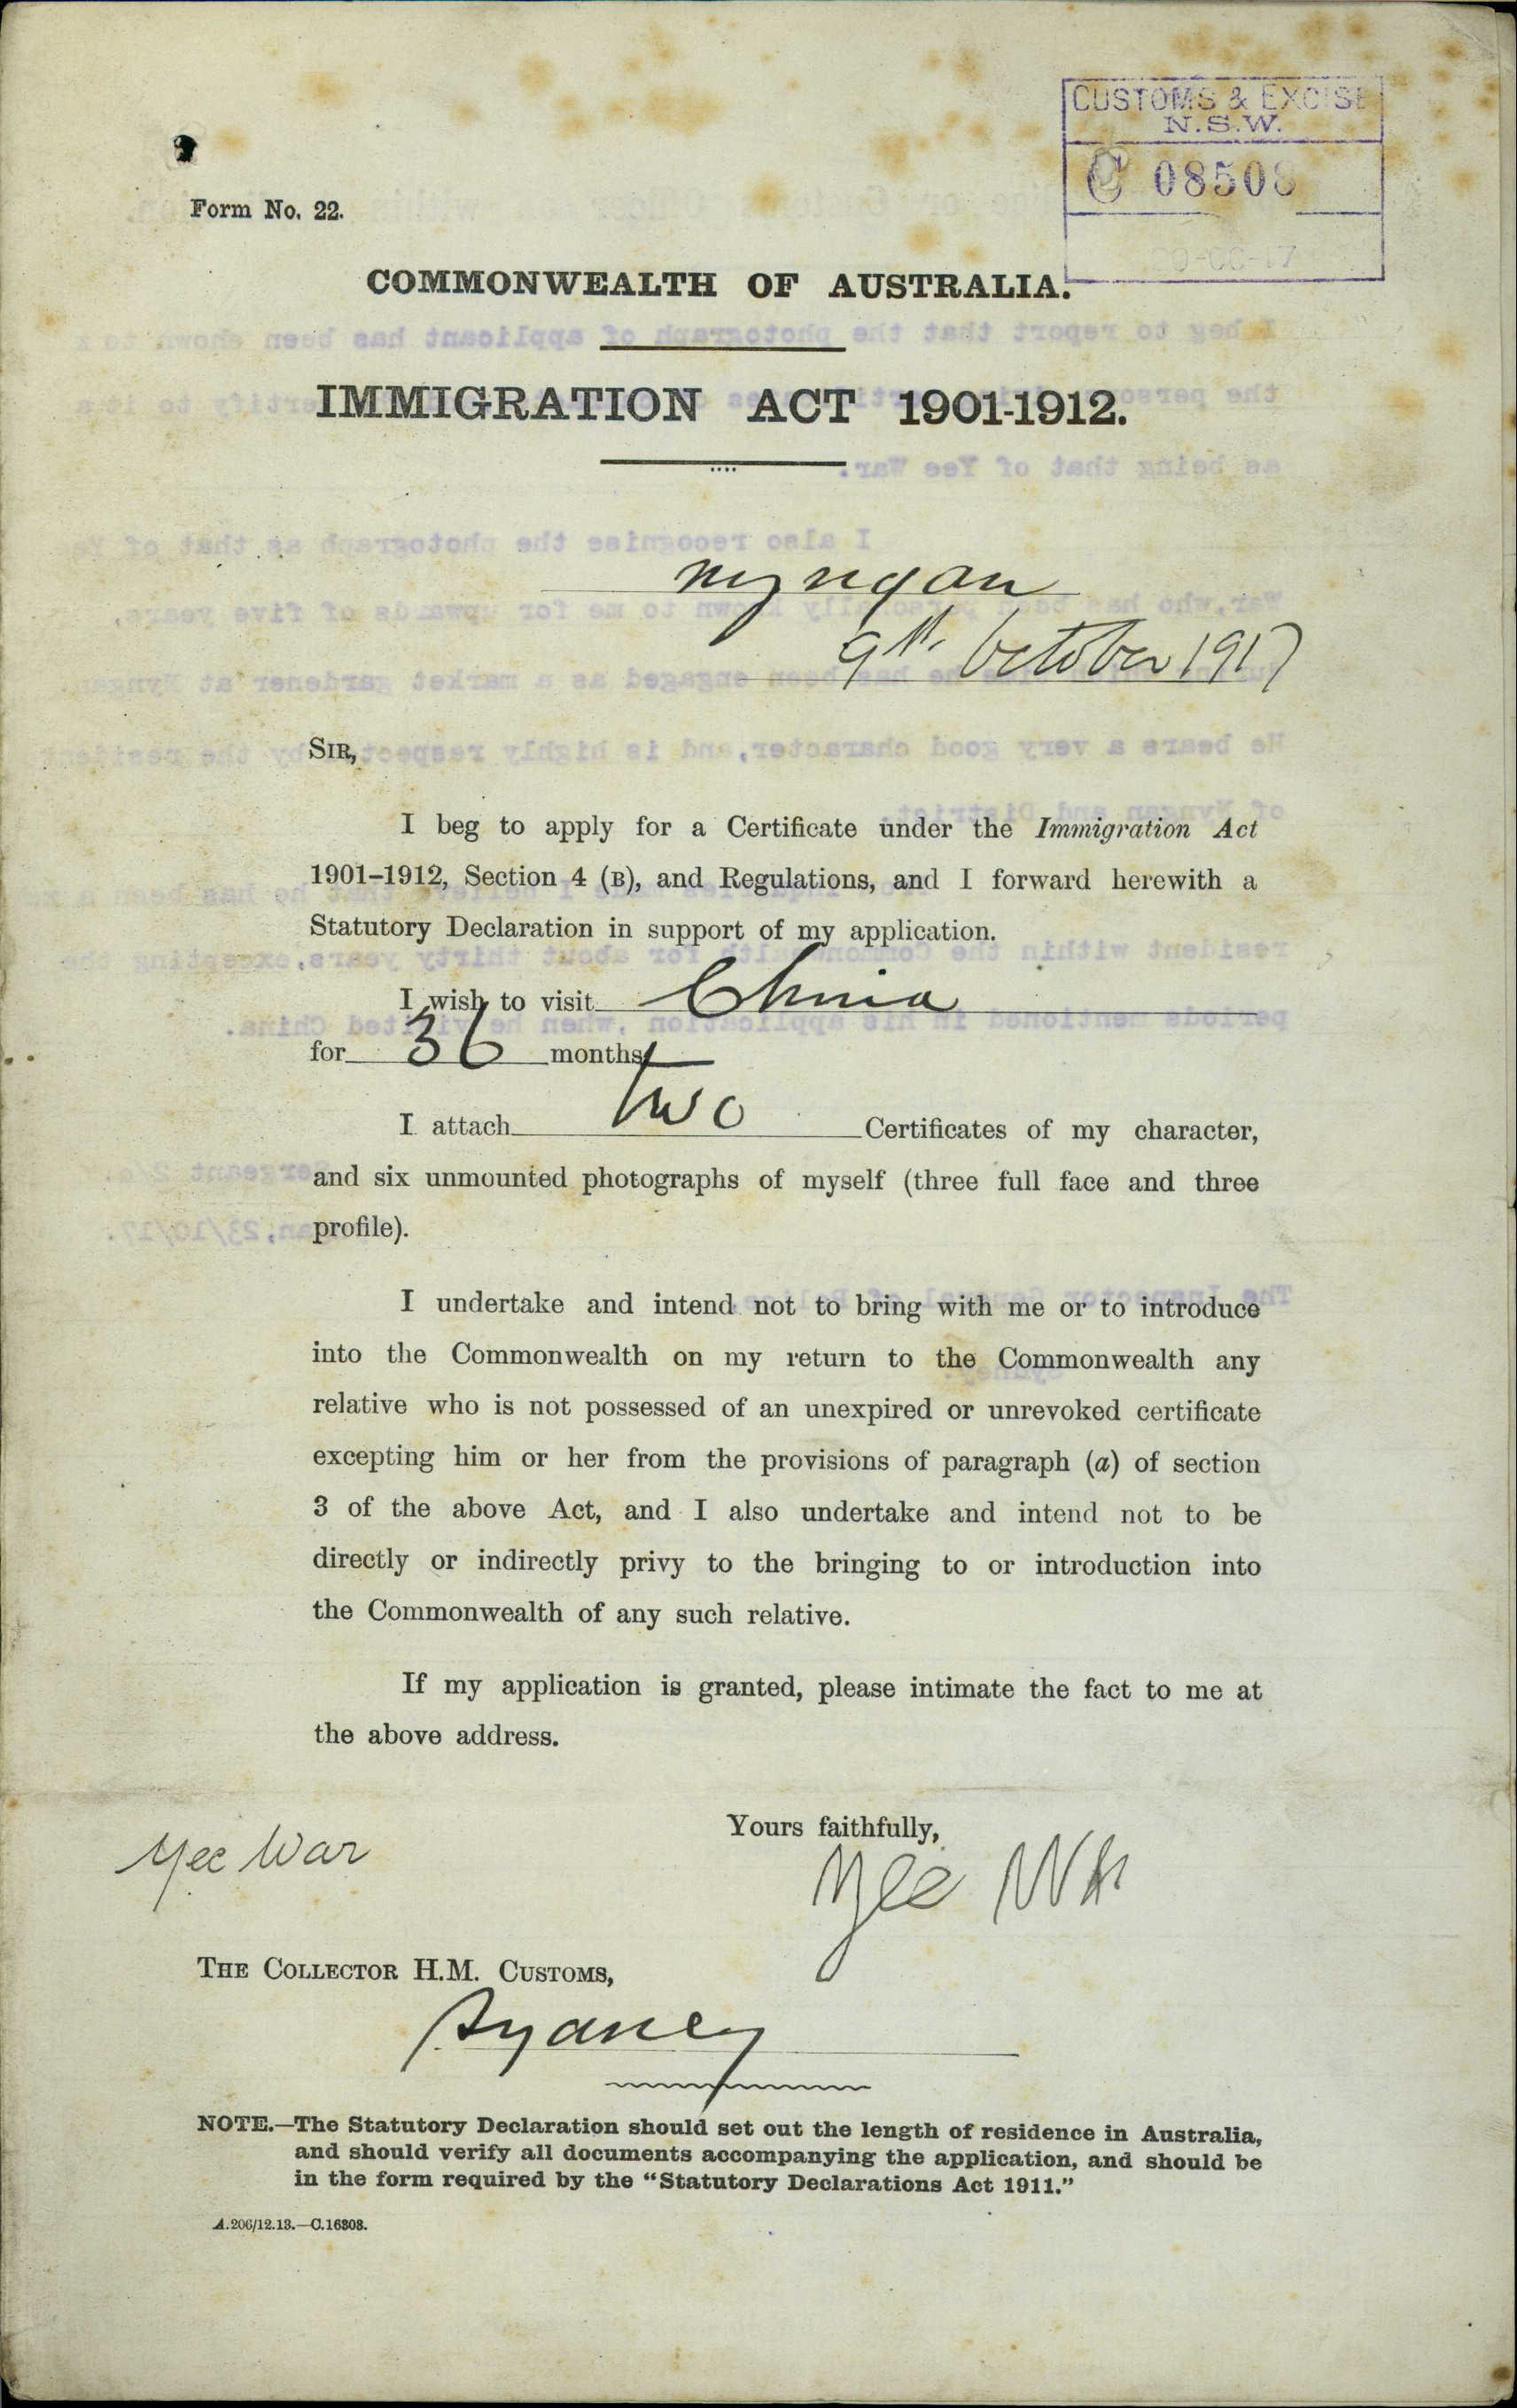 CUSTOMS & EXCISE
N.S.W.
C 08508
Form No. 22.
COMMONWEALTH OF AUSTRALIA.
IMMIGRATION ACT 1901-1912.
Nyngan
9th October 1917
SIR,
I beg to apply for a Certificate under the Immigration Act
1901–1912, Section 4 (B), and Regulations, and I forward herewith a
Statutory Declaration in support of my application.
I wish to visit China
for 36 months
I attach two Certificates of my character,
and six unmounted photographs of myself (three full face and three
profile).
I undertake and intend not to bring with me or to introduce
into the Commonwealth on my return to the Commonwealth any
relative who is not possessed of an unexpired or unrevoked certificate
excepting him or her from the provisions of paragraph (a) of section
3 of the above Act, and I also undertake and intend not to be
directly or indirectly privy to the bringing to or introduction into
the Commonwealth of any such relative.
If my application is granted, please intimate the fact to me at
the above address.
Yours faithfully,
Yee War
Yee War
THE COLLECTOR H.M. CUSTOMS,
Sydney
NOTE.—The Statutory Declaration should set out the length of residence in Australia,
and should verify all documents accompanying the application, and should be
in the form required by the “Statutory Declarations Act 1911.”
A.206/12.13.—C.16808.